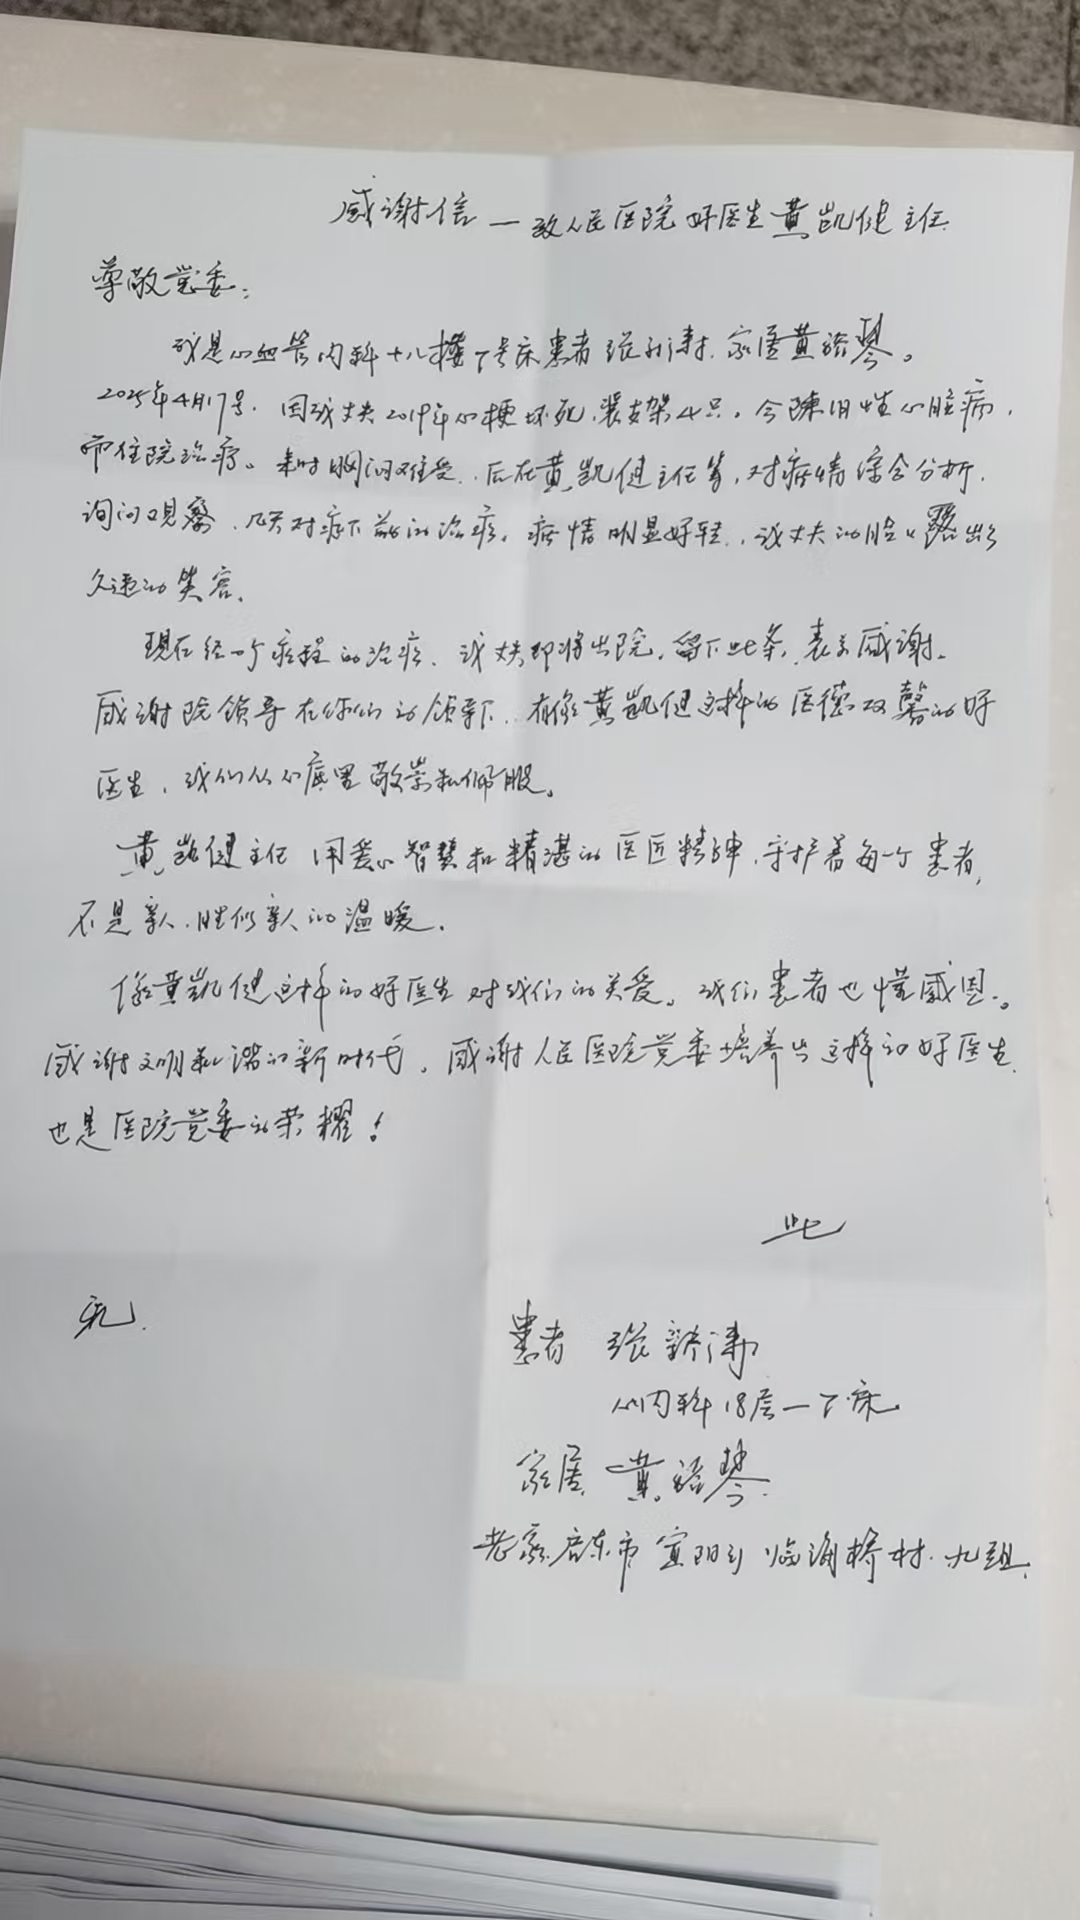 感谢信 — 致人民医院好医生黄凯健主任
尊敬党委:
我是心血管内科十八楼下号床患者张新涛.家属黄琴。
2025年4月17号.因我丈夫2019年心梗坏死,装支架4只。今陳旧性心脏病,
而住院治疗。来时胸闷难受.后在黄凯健主任等,对病情综合分析.
询问观察.几天对症下药的治疗。病情明显好转.,我丈夫的脸上露出了
久违的笑容.
现在经一个疗程的治疗.我丈夫即将出院,留下此条,表示感谢。
感谢院领导在你们的领导下.有像黄凯健这样的医德双馨的好
医生,我们从心底里敬崇和佩服。
黄凯健主任 用爱心智慧和精湛的医匠精神,守护着每一个患者,
不是亲人.胜似亲人的温暖.
像黄凯健这样的好医生对我们的关爱。我们患者也懂感恩。
感谢文明和谐的新时代。感谢人民医院党委培养出这样的好医生.
也是医院党委的荣耀!
此
礼.
患者 张新涛
心内科18层一下床
家属 黄琴
老家.启东市 临海桥村.九组.